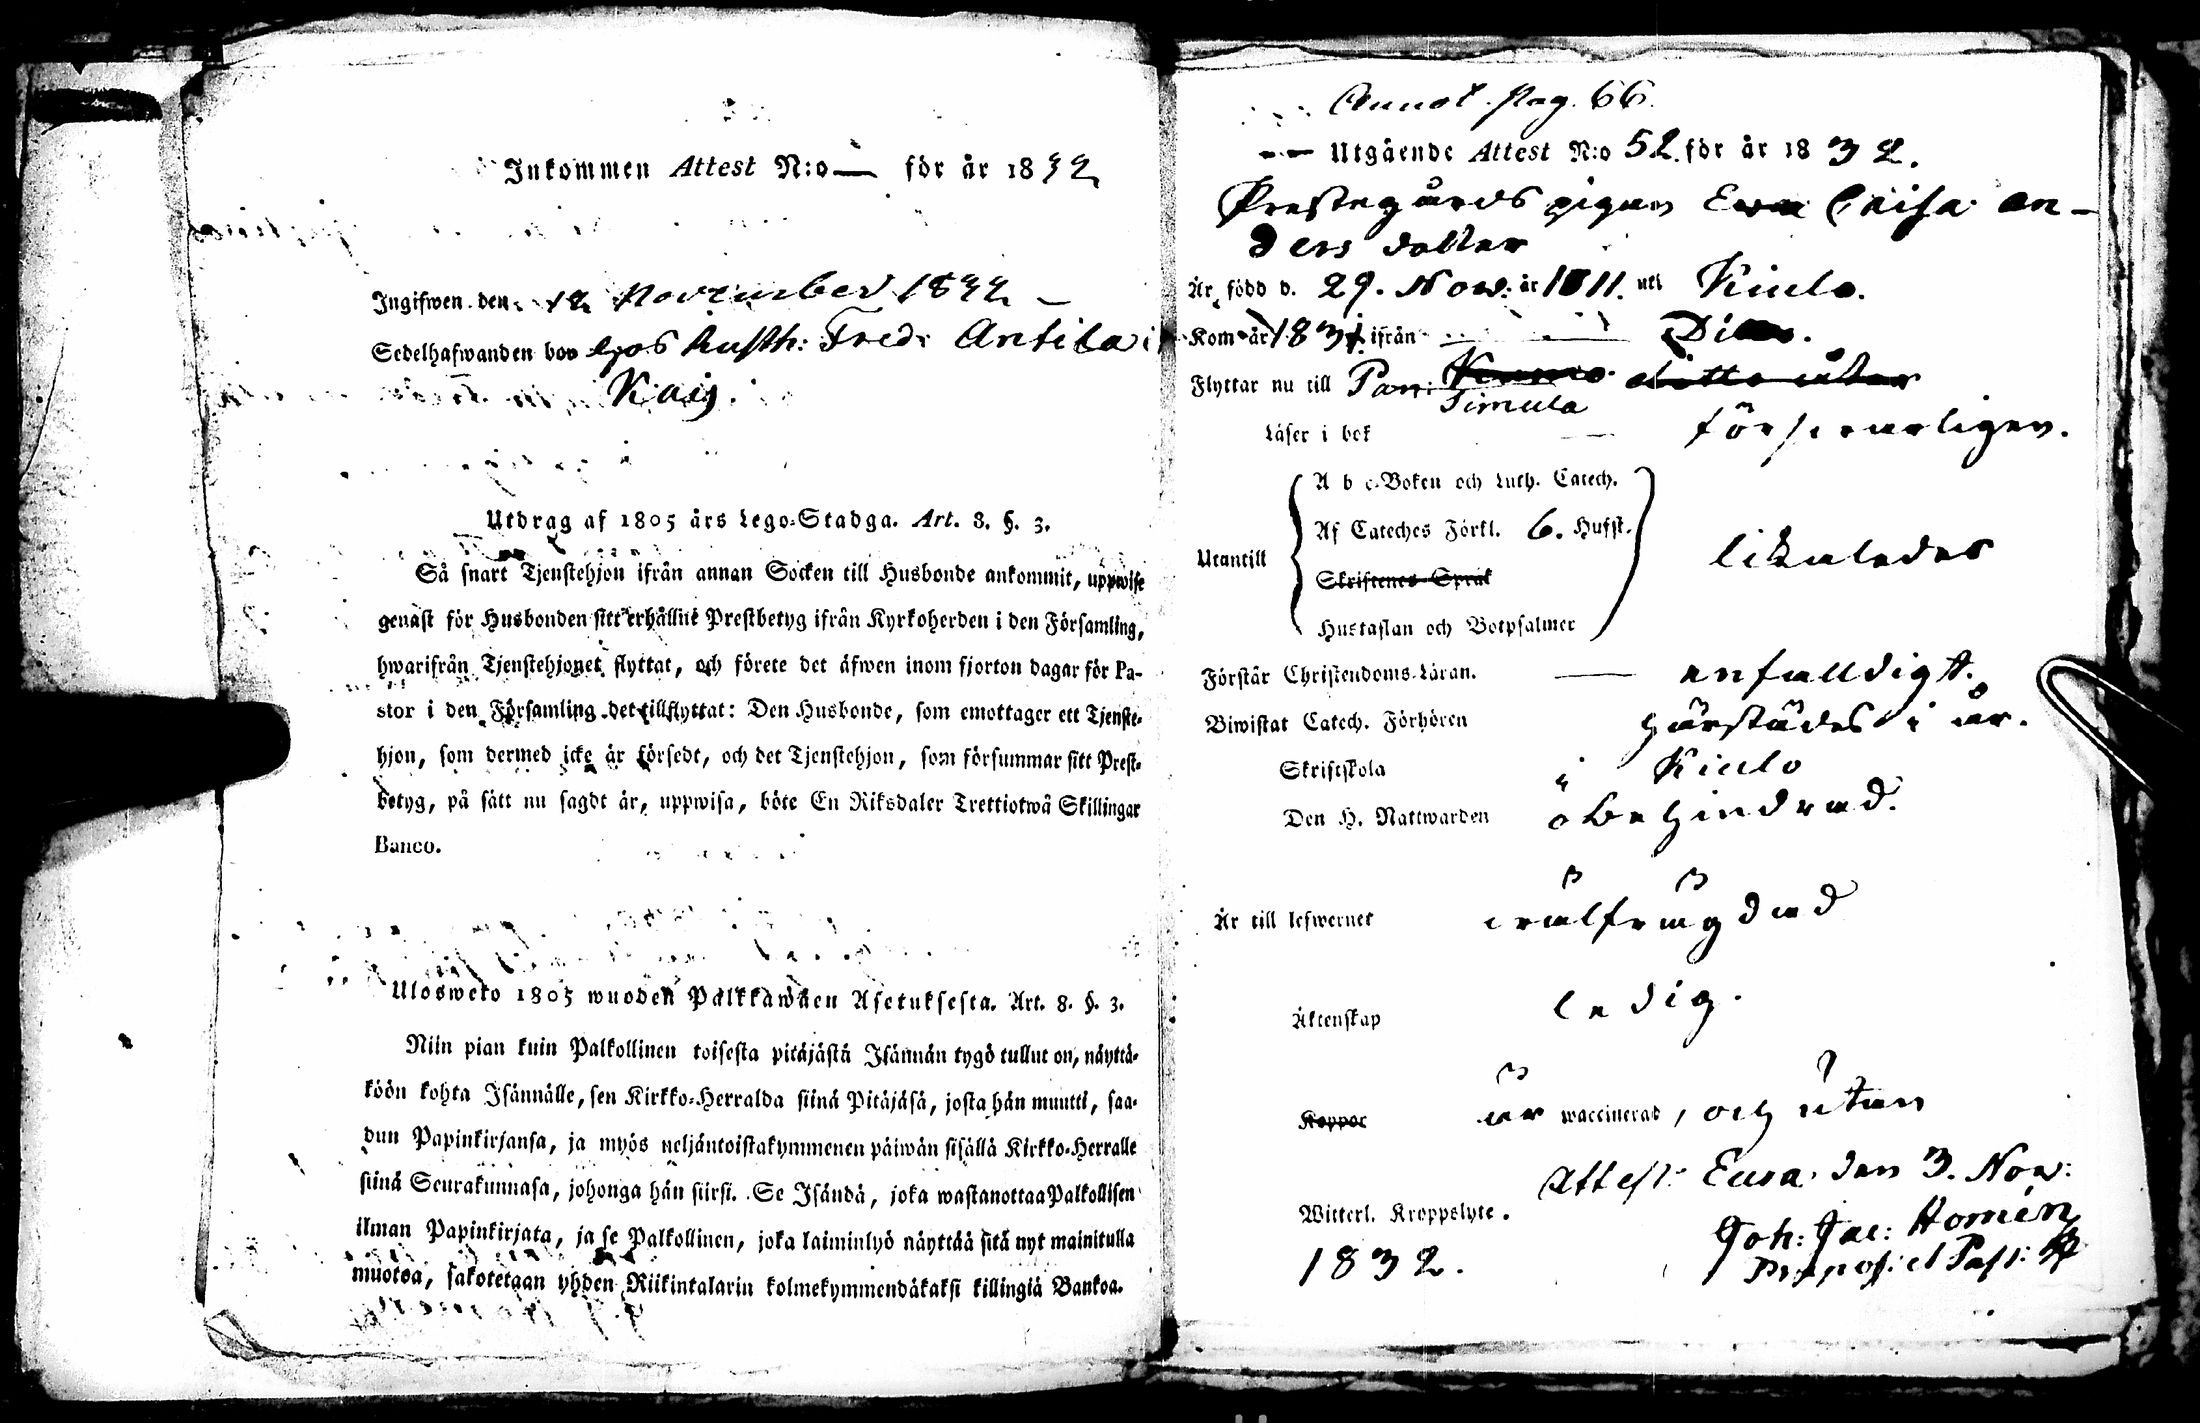 Inkommen Attest N:o — för år 1832
Ingifwen den 12 November 1832 —
Sedelhafwanden bor hos Rusth: Fred: Antila i
Kaig.
Utdrag af 1805 års Lego-Stadga. Art. 8. §. 3.
Så snart Tjenstehjon ifrån annan Socken till Husbonde ankommit, uppwise
genast för Husbonden sitt erhållne Prestbetyg ifrån Kyrkoherden i den Församling,
hwarifrån Tjenstehjonet flyttat, och förete det äfwen inom fjorton dagar för Pa-
stor i den Församling det tillflyttat: Den Husbonde, som emottager ett Tjenste-
hjon, som dermed icke är försedt, och det Tjenstehjon, som försummar sitt Prest-
betyg, på sätt nu sagdt är, uppwisa, böte En Riksdaler Trettiotwå Skillingar
Banco.
Ulosweto 1805 wuoden Palkkawäen Asetuksesta. Art. 8. §. 3.
Niin pian kuin Palkollinen toisesta pitäjästä Isännän tygö tullut on, näyttä-
köön kohta Isännälle, sen Kirkko-Herralda siinä Pitäjäsä, josta hän muutti, saa-
dun Papinkirjansa, ja myös neljäntoistakymmenen päiwän sisällä Kirkko-Herralle
siinä Seurakunnasa, johonga hän siirsi. Se Isändä, joka wastanottaa Palkollisen
ilman Papinkirjata, ja se Palkollinen, joka laiminlyö näyttää sitä nyt mainitulla
muotoa, sakotetaan yhden Riikintalarin kolmekymmendäkaksi killingiä Bankoa.
Annot. pag. 66.
— Utgående Attest N:o 52. för år 1832.
Prestegårds pigan Ewa Caisa An-
ders dotter
Är född d. 29. Now: år 1811. uti Kiulo.
Kom år 1831 ifrån — Dito.
Flyttar nu till Pun:
Timula
Läser i bok — förswarligen.
A b c-Boken och Luth. Catech.
Af Cateches Förkl. 6. Hufst.
Utantill likaledes
Skriftenes Språk
Hustaflan och Botpsalmer
Förstår Christendoms-Läran. — enfalldigt.
Biwistat Catech. Förhören härstädes i år.
Skriftskola i Kiulo
Den H. Nattwarden obehindrad.
Är till lefwernet wälfrägdad
Äktenskap ledig.
Koppor är waccinerad, och utan
Attest. Eura. den 3. Now:
Witterl. Kroppslyte.
1832. Joh: Jac: Homén
Præpos: et Past: